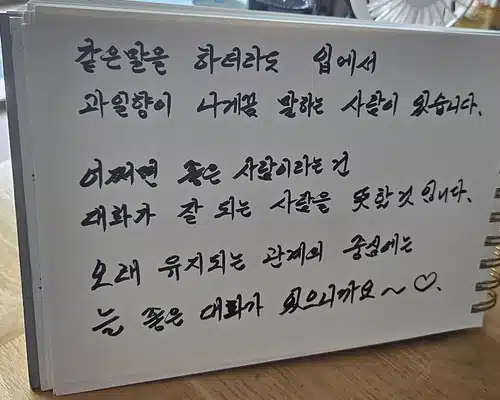 같은말을 하더라도 입에서
과일향이 나게끔 말하는 사람이 있습니다.
어쩌면 좋은 사람이라는건
대화가 잘 되는 사람을 뜻할것 입니다.
오래 유지되는 관계의 중심에는
늘 좋은 대화가 있으니까요~♡.